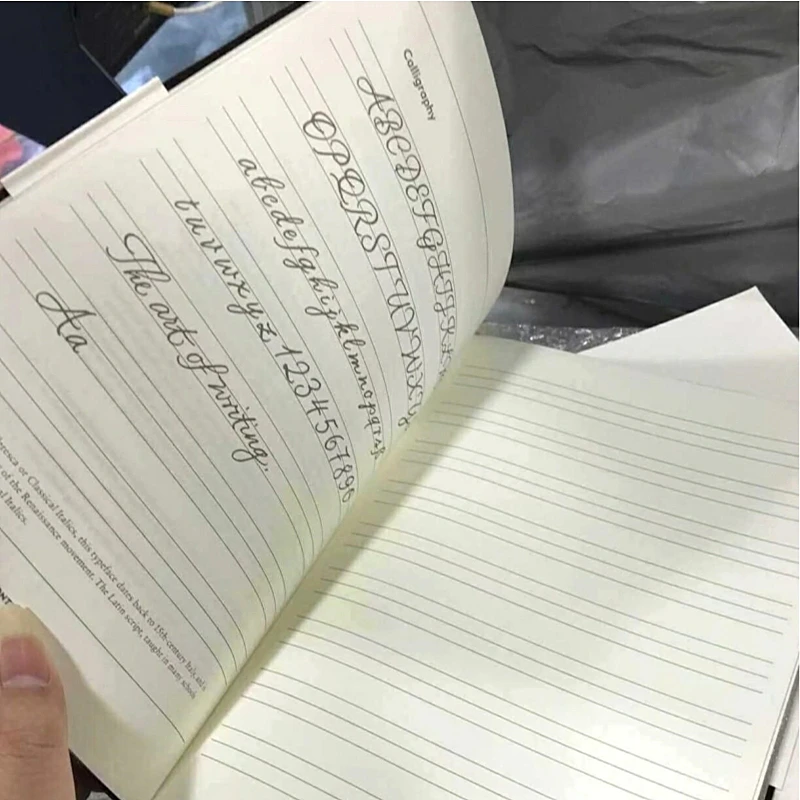 Calligraphy
ABCDEFGHIJK
OPQRSTUVWXY
abcdefghijklmnopqrs
tuvwxyz 1234567890
The art of writing.
Aa
or Classical Italics, this typeface dates back to 15th-century Italy, and
of the Renaissance movement. The Latin script, taught in many schools
Italics.